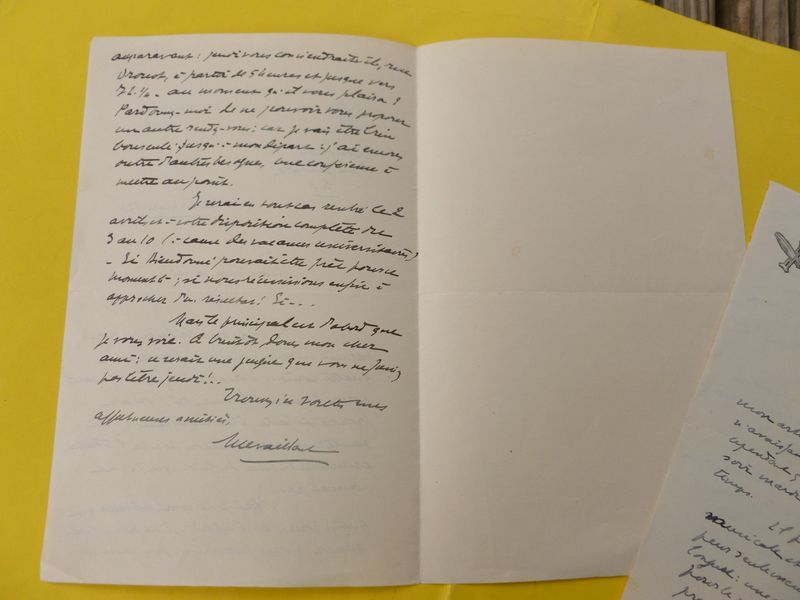 auparavant : jeudi vous conviendrait-il, rue
Drouot, à partir de 5 heures et jusque vers
7 h. ¼ - au moment qu'il vous plaira ?
Pardonnez-moi de ne pouvoir vous proposer
un autre rendez-vous : car je vais être
bousculé jusqu'à mon départ : j'ai encore
outre d'autres besognes, une conférence à
mettre au point.
Je serai en tout cas rentré le 2
avril et à votre disposition complète du
3 au 10 (à cause des vacances universitaires)
- Si Dieudonné pouvait être prêt pour ce
moment-là ; si nous réussissions enfin à
approcher du résultat ! Si...
Mais le principal est d'abord que
je vous voie. A bientôt donc mon cher
ami : ce serait une guigne que vous ne
pas libre jeudi !..
Trouvez ici toutes mes
affectueuses amitiés,
mon
n'avais
soir mardi
temps.
peux seulement
une
pour